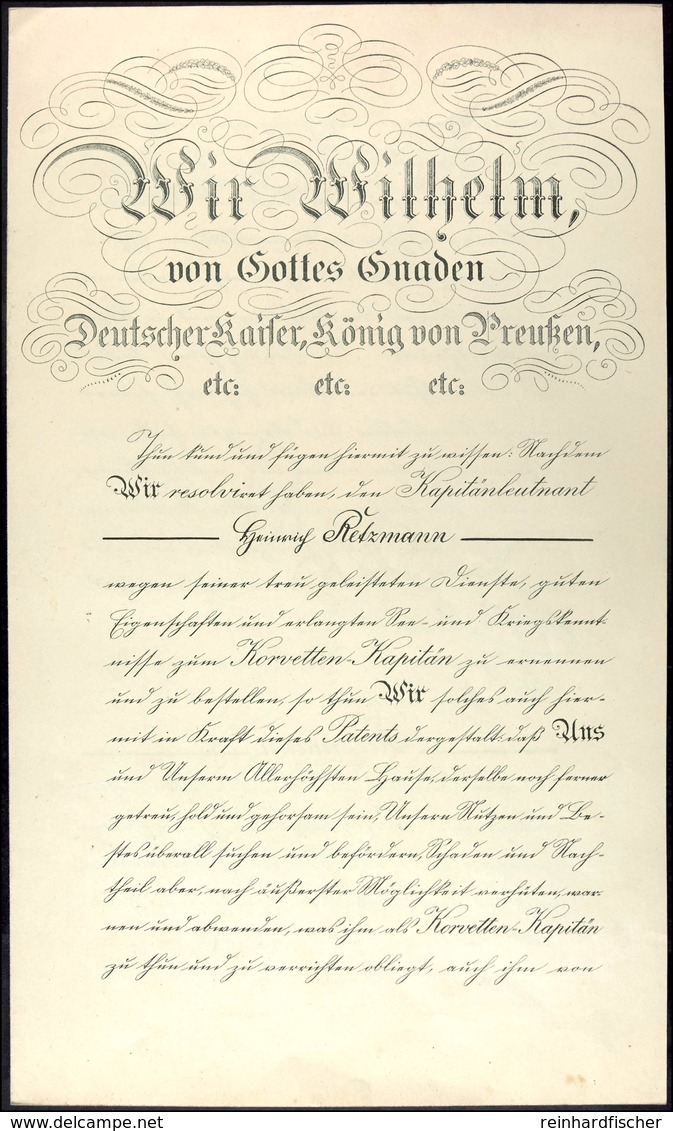 Wir Wilhelm,
von Gottes Gnaden
Deutscher Kaiser, König von Preußen,
etc: etc: etc:
Thun kund und fügen hiermit zu wissen: Nachdem
Wir resolviret haben, den Kapitänleutnant
Heinrich Retzmann
wegen seiner treu geleisteten Dienste, guten
Eigenschaften und erlangten See- und Kriegskennt-
nisse zum Korvetten-Kapitän zu ernennen
und zu bestellen, so thun Wir solches auch hier-
mit in Kraft dieses Patents dergestalt: daß Uns
und Unserm Allerhöchsten Hause, derselbe noch ferner
getreu, hold und gehorsam sein, Unsern Nutzen und Be-
stes überall suchen und befördern, Schaden und Nach-
theil aber, nach äußerster Möglichkeit verhüten, war-
nen und abwenden, was ihm als Korvetten-Kapitän
zu thun und zu verrichten obliegt, auch ihm von
www.delcampe.net
reinhardfischer